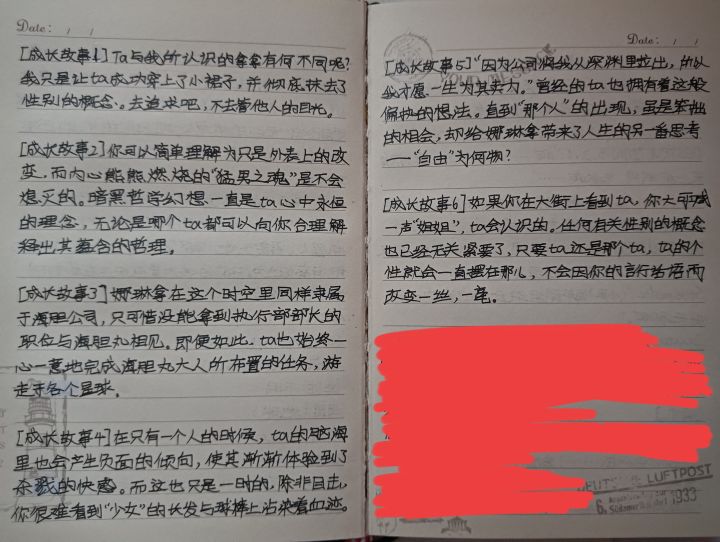 Date: / /
[成长故事1] Ta与我所认识的拿拿有何不同呢?
我只是让ta成功穿上了小裙子，并彻底抹去了
性别的概念。去追求吧，不去管他人的目光。
[成长故事2]你可以简单理解为只是外表上的改
变，而内心熊熊燃烧的“猛男之魂”是不会
熄灭的。暗黑哲学幻想一直是ta心中永恒
的理念，无论是哪个ta都可以向你合理解
释出其蕴含的哲理。
[成长故事3]娜琳拿在这个时空里同样隶属
于海胆公司，只可惜没能拿到执行部部长的
职位与海胆丸相见。即便如此，ta也始终一
心一意地完成海胆丸大人所布置的任务，游
走于各个星球。
[成长故事4]在只有一个人的时候，ta的脑海
里也会产生负面的倾向，使其渐渐体验到了
杀戮的快感。而这也只是一时的，除非目击，
你很难看到“少女”的长发与球棒上沾染着血迹。
Date: / /
[成长故事5]“因为公司将我从深渊里拉出，所以
我才愿一生为其卖力。”曾经的ta也拥有着这般
偏执的想法。直到“那个人”的出现，虽是笨拙
的相会，却给娜琳拿带来了人生的另一番思考
——“自由”为何物?
[成长故事6]如果你在大街上看到ta，你大可喊
一声“姐姐”，ta会认识的。任何有关性别的概念
也已经无关紧要了，只要ta还是那个ta，ta的个
性就会一直摆在那儿，不会因你的言行而
改变一丝，一毫。
LUFTPOST
6.
1933